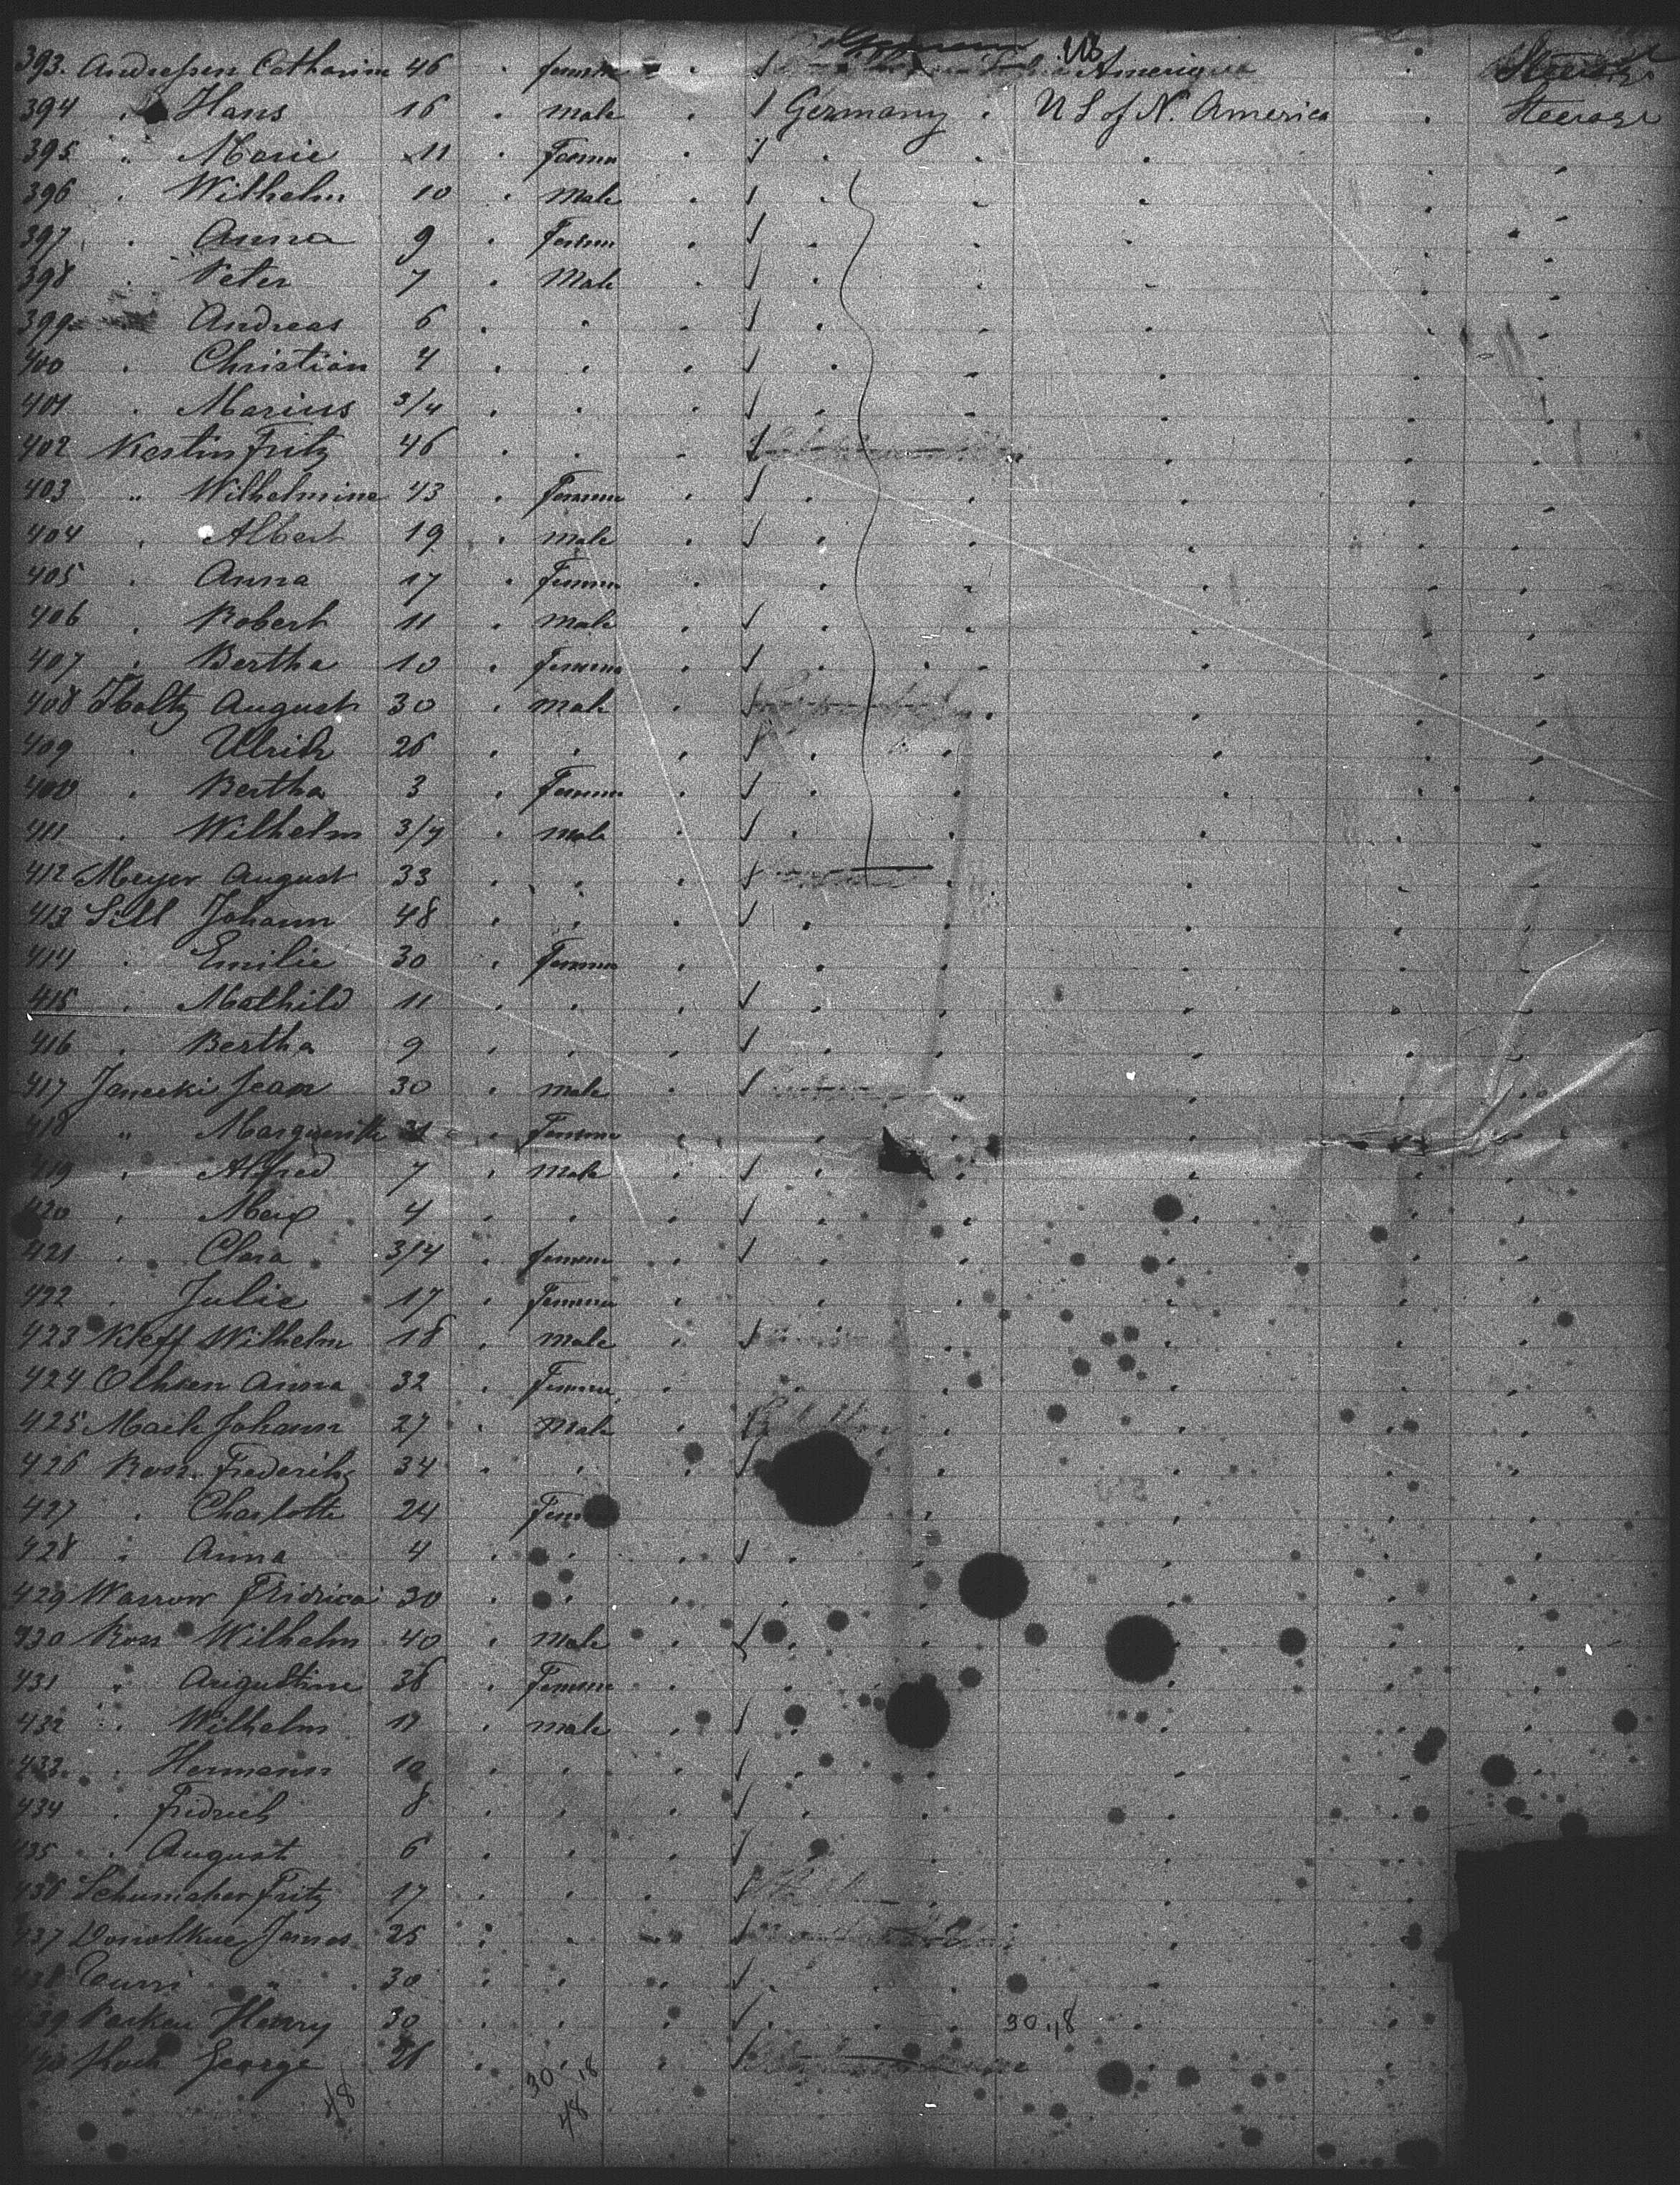 393. Andressen Catharine 46 . femme . Amerique Steerage
394 . Hans 16 . male . Germany . U S of N. America . Steerage
395 " Marie 11 . Femme
396 . Wilhelm 10 . Male
397 . Anna 9 . Femme
398 . Peter 7 . Male
399 Andreas 6
400 . Christian 4
401 . Marius 3/4
402 Kestin Fritz 46
403 " Wilhelmine 43 . Femme
404 . Albert 19 . male
405 . Anna 17 . Femme
406 . Robert 11 . male
407 . Bertha 10 . Femme
408 Holtz August 30 . male
409 . Ulrich 26
400 . Bertha 3 . Femme
411 . Wilhelm 3/4 . male
412 Meyer August 33
413 Sill Johann 48
414 . Emilie 30 . Femme
415 . Mathild 11
416 . Bertha 9
417 Janecki Jean 30 . male
418 " Marguerite . Femme
419 . Alfred 7 . male
420 . Max 4
421 . Clara 3/4 . femme
422 . Julie 17 . Femme
423 Kleff Wilhelm 18 . male
424 Olhsen Anna 32 . Femme
425 Mack Johann 27 . Male
426 Ron. Frederik 34
427 . Charlotte 24
428 . Anna 4
429 Warrow Fridrica 30
430 Ron Wilhelm 40 . Male
431 " Augustine 36 . Femme
432 . Wilhelm 11 . male
433 . Hermann 10
434 . Fridrich 8
435 . August 6
436 Schumacher Fritz 17
437 James 25
438 " 30
439 Parker Henry 30 30 18
George
48 30 18
48